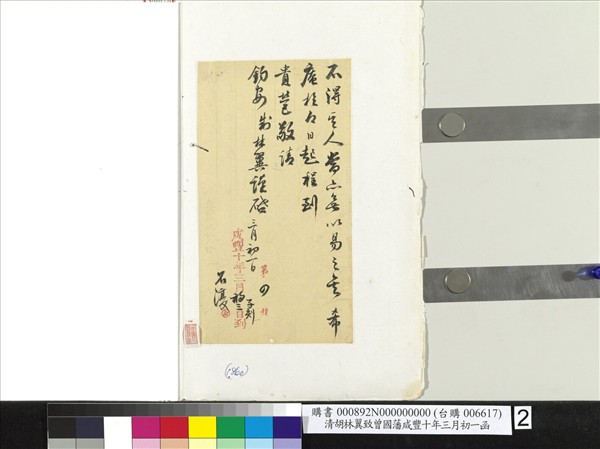 不得主人當亦無以易之矣希
庵於今日起程到
貴營敬請
鈞安制林翼謹啟三月初一日
第四件
咸豐十年三月初三日到
子刻
石濤
(186a)
購書 000892N000000000 (台購 006617)
清胡林翼致曾國藩咸豐十年三月初一函
2